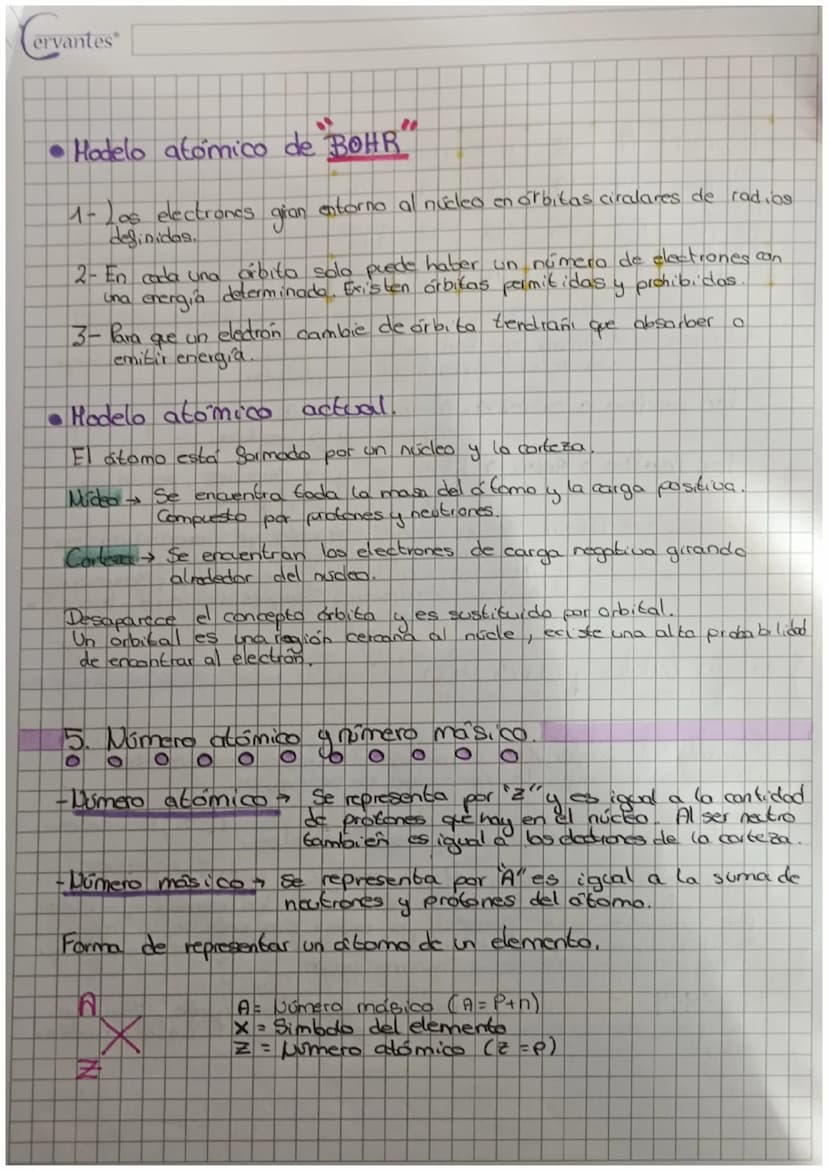 Cervantes®
• Modelo atómico de "BOHR"
1- Los electrones giran entorno al núcleo en órbitas circulares de radios
definidos.
2- En cada una órbita solo puede haber un número de electrones con
una energía determinada. Existen órbitas permitidas y prohibidas.
3- Para que un electrón cambie de órbita tendrán que absorber o
emitir energía.
• Modelo atómico actual.
El átomo está formado por un núcleo y la corteza.
Núcleo → Se encuentra toda la masa del átomo y la carga positiva.
Compuesto por protones y neutrones.
Corteza → Se encuentran los electrones de carga negativa girando
alrededor del núcleo.
Desaparece el concepto órbita y es sustituido por orbital.
Un orbital es una región cercana al núcle, existe una alta probabilidad
de encontrar al electrón.
5. Número atómico y número másico.
- Número atómico → Se representa por "Z" y es igual a la cantidad
de protones que hay en el núcleo. Al ser neutro
también es igual a los electrones de la corteza.
- Número másico → Se representa por "A" es igual a la suma de
neutrones y protones del átomo.
Forma de representar un átomo de un elemento.
A
X
Z
A = Número másico (A = P+n)
X = Simbolo del elemento
Z = Número atómico (Z = p)